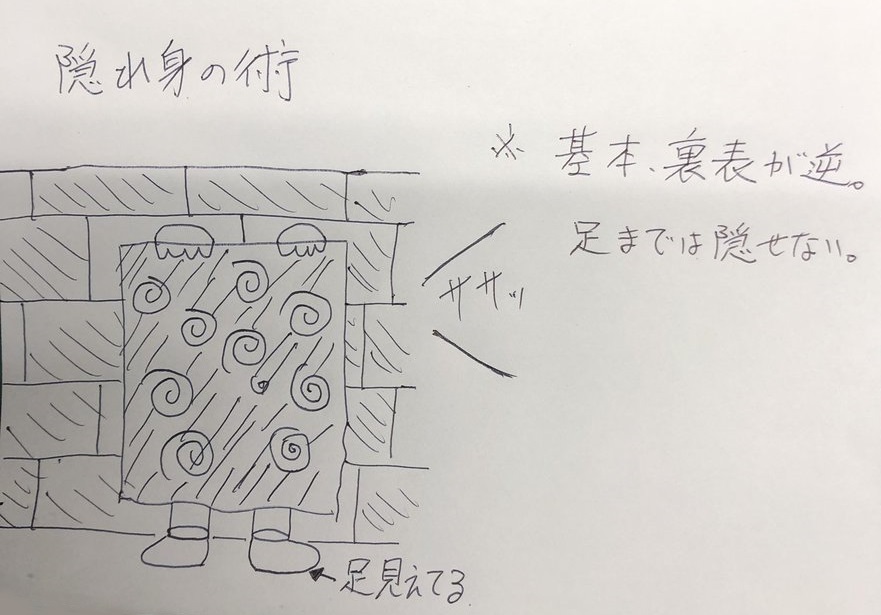 隠れ身の術
※ 基本、裏表が逆。
足までは隠せない。
ササッ
足見えてる